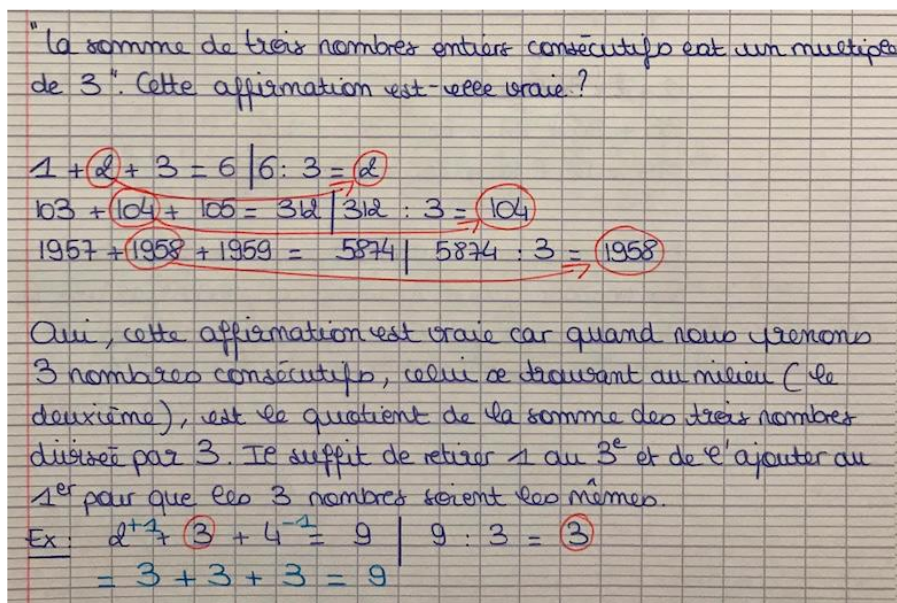 "La somme de trois nombres entiers consécutifs est un multiple
de 3". Cette affirmation est-elle vraie ?
1 + 2 + 3 = 6 | 6 : 3 = 2
103 + 104 + 105 = 312 | 312 : 3 = 104
1957 + 1958 + 1959 = 5874 | 5874 : 3 = 1958
Oui, cette affirmation est vraie car quand nous prenons
3 nombres consécutifs, celui se trouvant au milieu ( le
deuxième), est le quotient de la somme des trois nombres
divisée par 3. Il suffit de retirer 1 au 3e et de l'ajouter au
1er pour que les 3 nombres soient les mêmes.
Ex : 2⁺¹ + 3 + 4⁻¹ = 9 | 9 : 3 = 3
= 3 + 3 + 3 = 9